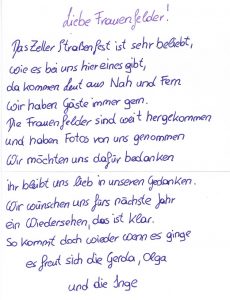 Liebe Frauenfelder!
Das Zeller Straßenfest ist sehr beliebt,
wie es bei uns hier eines gibt,
da kommen Leut aus Nah und Fern
Wir haben Gäste immer gern.
Die Frauenfelder sind weit hergekommen
und haben Fotos von uns genommen
Wir möchten uns dafür bedanken
ihr bleibt uns lieb in unseren Gedanken.
Wir wünschen uns fürs nächste Jahr
ein Wiedersehen, das ist klar.
So kommt doch wieder wenn es ginge
es freut sich die Gerda, Olga
und die Inge